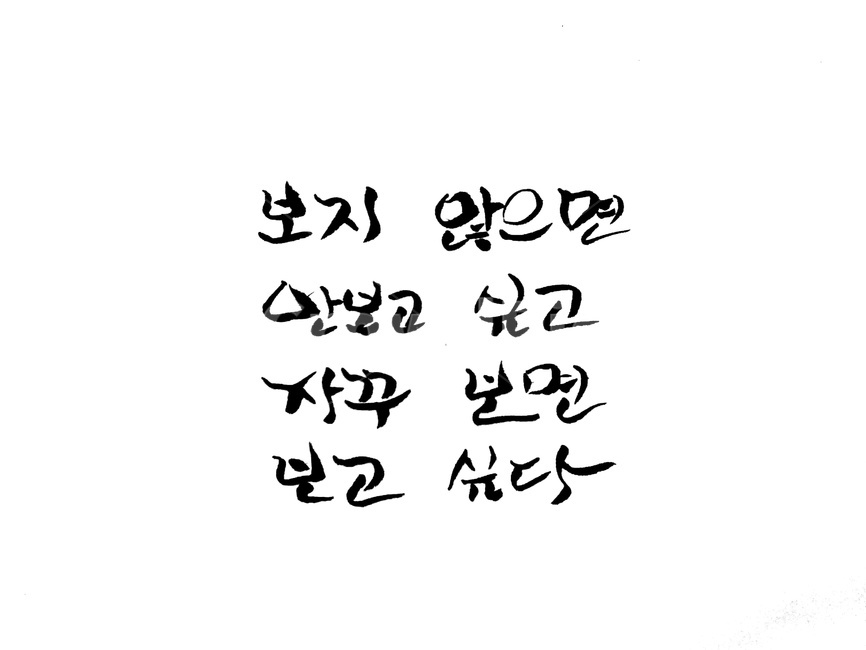 보지 않으면
안보고 싶고
자꾸 보면
보고 싶다